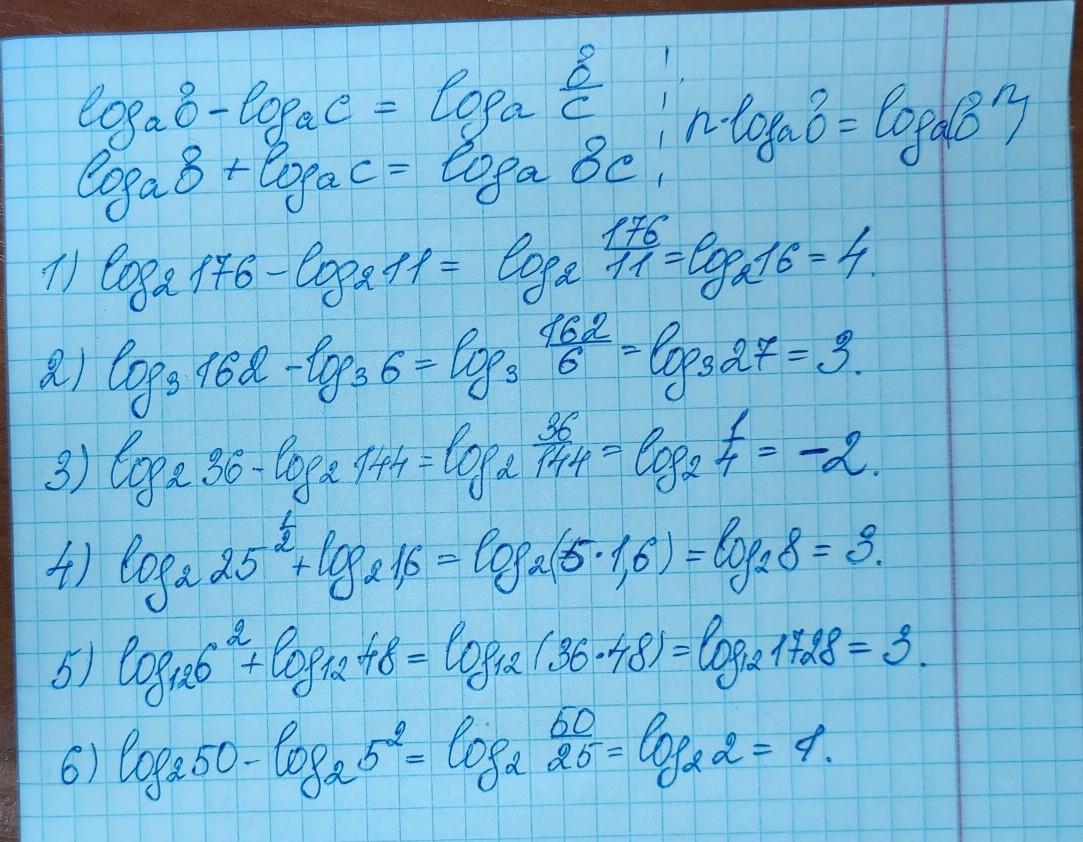 logₐb - logₐc = logₐ b/c ; n·logₐb = logₐ(bⁿ)
logₐb + logₐc = logₐ bc ;
1) log₂176 - log₂11 = log₂ 176/11 = log₂16 = 4.
2) log₃162 - log₃6 = log₃ 162/6 = log₃27 = 3.
3) log₂36 - log₂144 = log₂ 36/144 = log₂ 1/4 = -2.
4) log₂25^(1/2) + log₂1,6 = log₂(5·1,6) = log₂8 = 3.
5) log₁₂6² + log₁₂48 = log₁₂(36·48) = log₁₂1728 = 3.
6) log₂50 - log₂5² = log₂ 50/25 = log₂2 = 1.